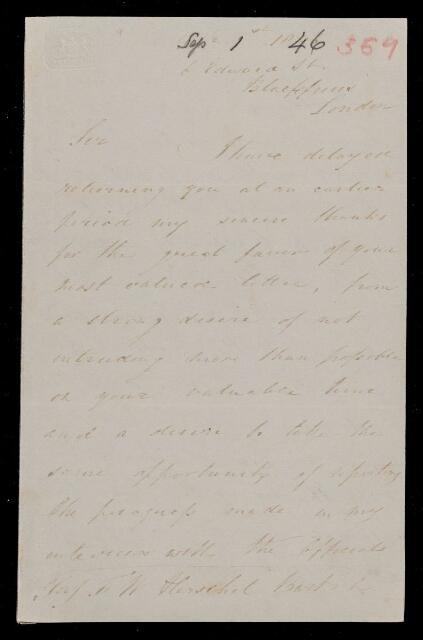 Sep 1st 1846 359
6 Edward St.
Blackfriars
London
Sir
I have delayed
returning you at an earlier
period my sincere thanks
for the great favor of your
most valued letter, from
a strong desire of not
intruding more than possible
on your valuable time
and a desire to take the
same opportunity of reporting
the progress made in my
interview with the officials
Sir J F W Herschel Bart &c